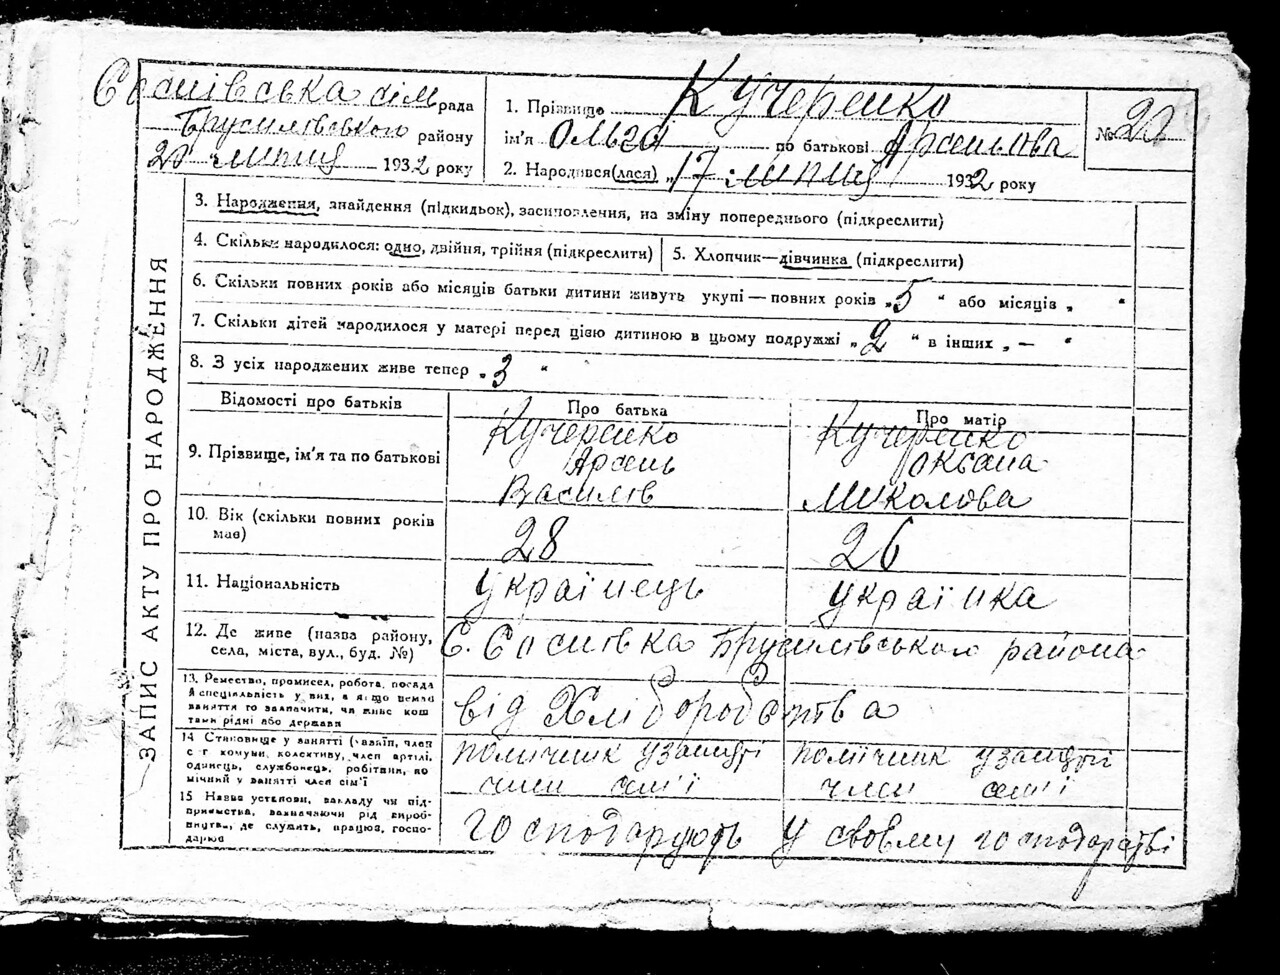 Соснівська сім рада
Брусилівського району
20 липця 1932 року
1. Прізвище Кучеренко
ім'я Ольга по батькові Арсеньова
2. Народився(лася) „17 липця 1932 року
№ 20
ЗАПИС АКТУ ПРО НАРОДЖЕННЯ
3. Народження, знайдення (підкидьок), засиновлення, на зміну попереднього (підкреслити)
4. Скільки народилося: одно, двійня, трійня (підкреслити)
5. Хлопчик—дівчинка (підкреслити)
6. Скільки повних років або місяців батьки дитини живуть укупі—повних років „5 “ або місяців „ “
7. Скільки дітей народилося у матері перед цією дитиною в цьому подружжі „ 2 “ в інших „ — “
8. З усіх народжених живе тепер „3 “
Відомості про батьків
Про батька
Про матір
9. Прізвище, ім'я та по батькові
Кучеренко
Арсень
Василів
Кучеренко
Оксана
Миколова
10. Вік (скільки повних років
має)
28
26
11. Національність
українець
українка
12. Де живе (назва району,
села, міста, вул., буд. №)
С. Соснівка Брусилівського района
13. Ремество, промисел, робота, посада
й спеціальність у них, а якщо немає
заняття то зазначити, чи живе кош
тами рідні або держави
від Хліборобства
14 Становище у занятті (хазяїн, член
с г комуни, колективу, член артілі,
одинець, службовець, робітник, по
мічний у занятті член сім'ї
помічник у занятті
член сем'ї
помічник у занятті
член сем'ї
15 Назва установи, закладу чи під-
приємства, зазначаючи рід вироб-
ництва, де служить, працює, госпо-
дарює
господарують у своєму господарстві